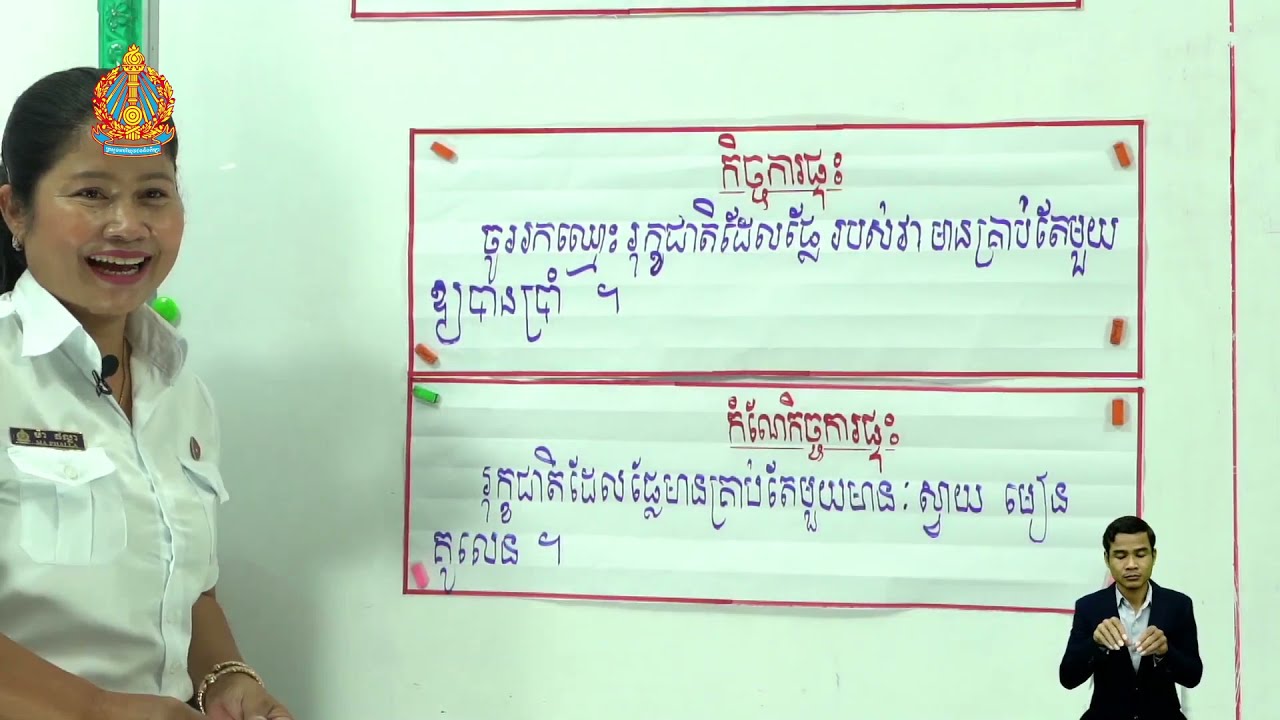 កិច្ចការផ្ទះ
ចូររកឈ្មោះ រុក្ខជាតិដែលផ្លែ របស់វា មានគ្រាប់តែមួយ
ឱ្យបានប្រាំ ។
កំណែកិច្ចការផ្ទះ
រុក្ខជាតិដែលផ្លែមានគ្រាប់តែមួយមាន : ស្វាយ មៀន
គូលេន ។
ម៉ា ផល្លា
MA PHALLA